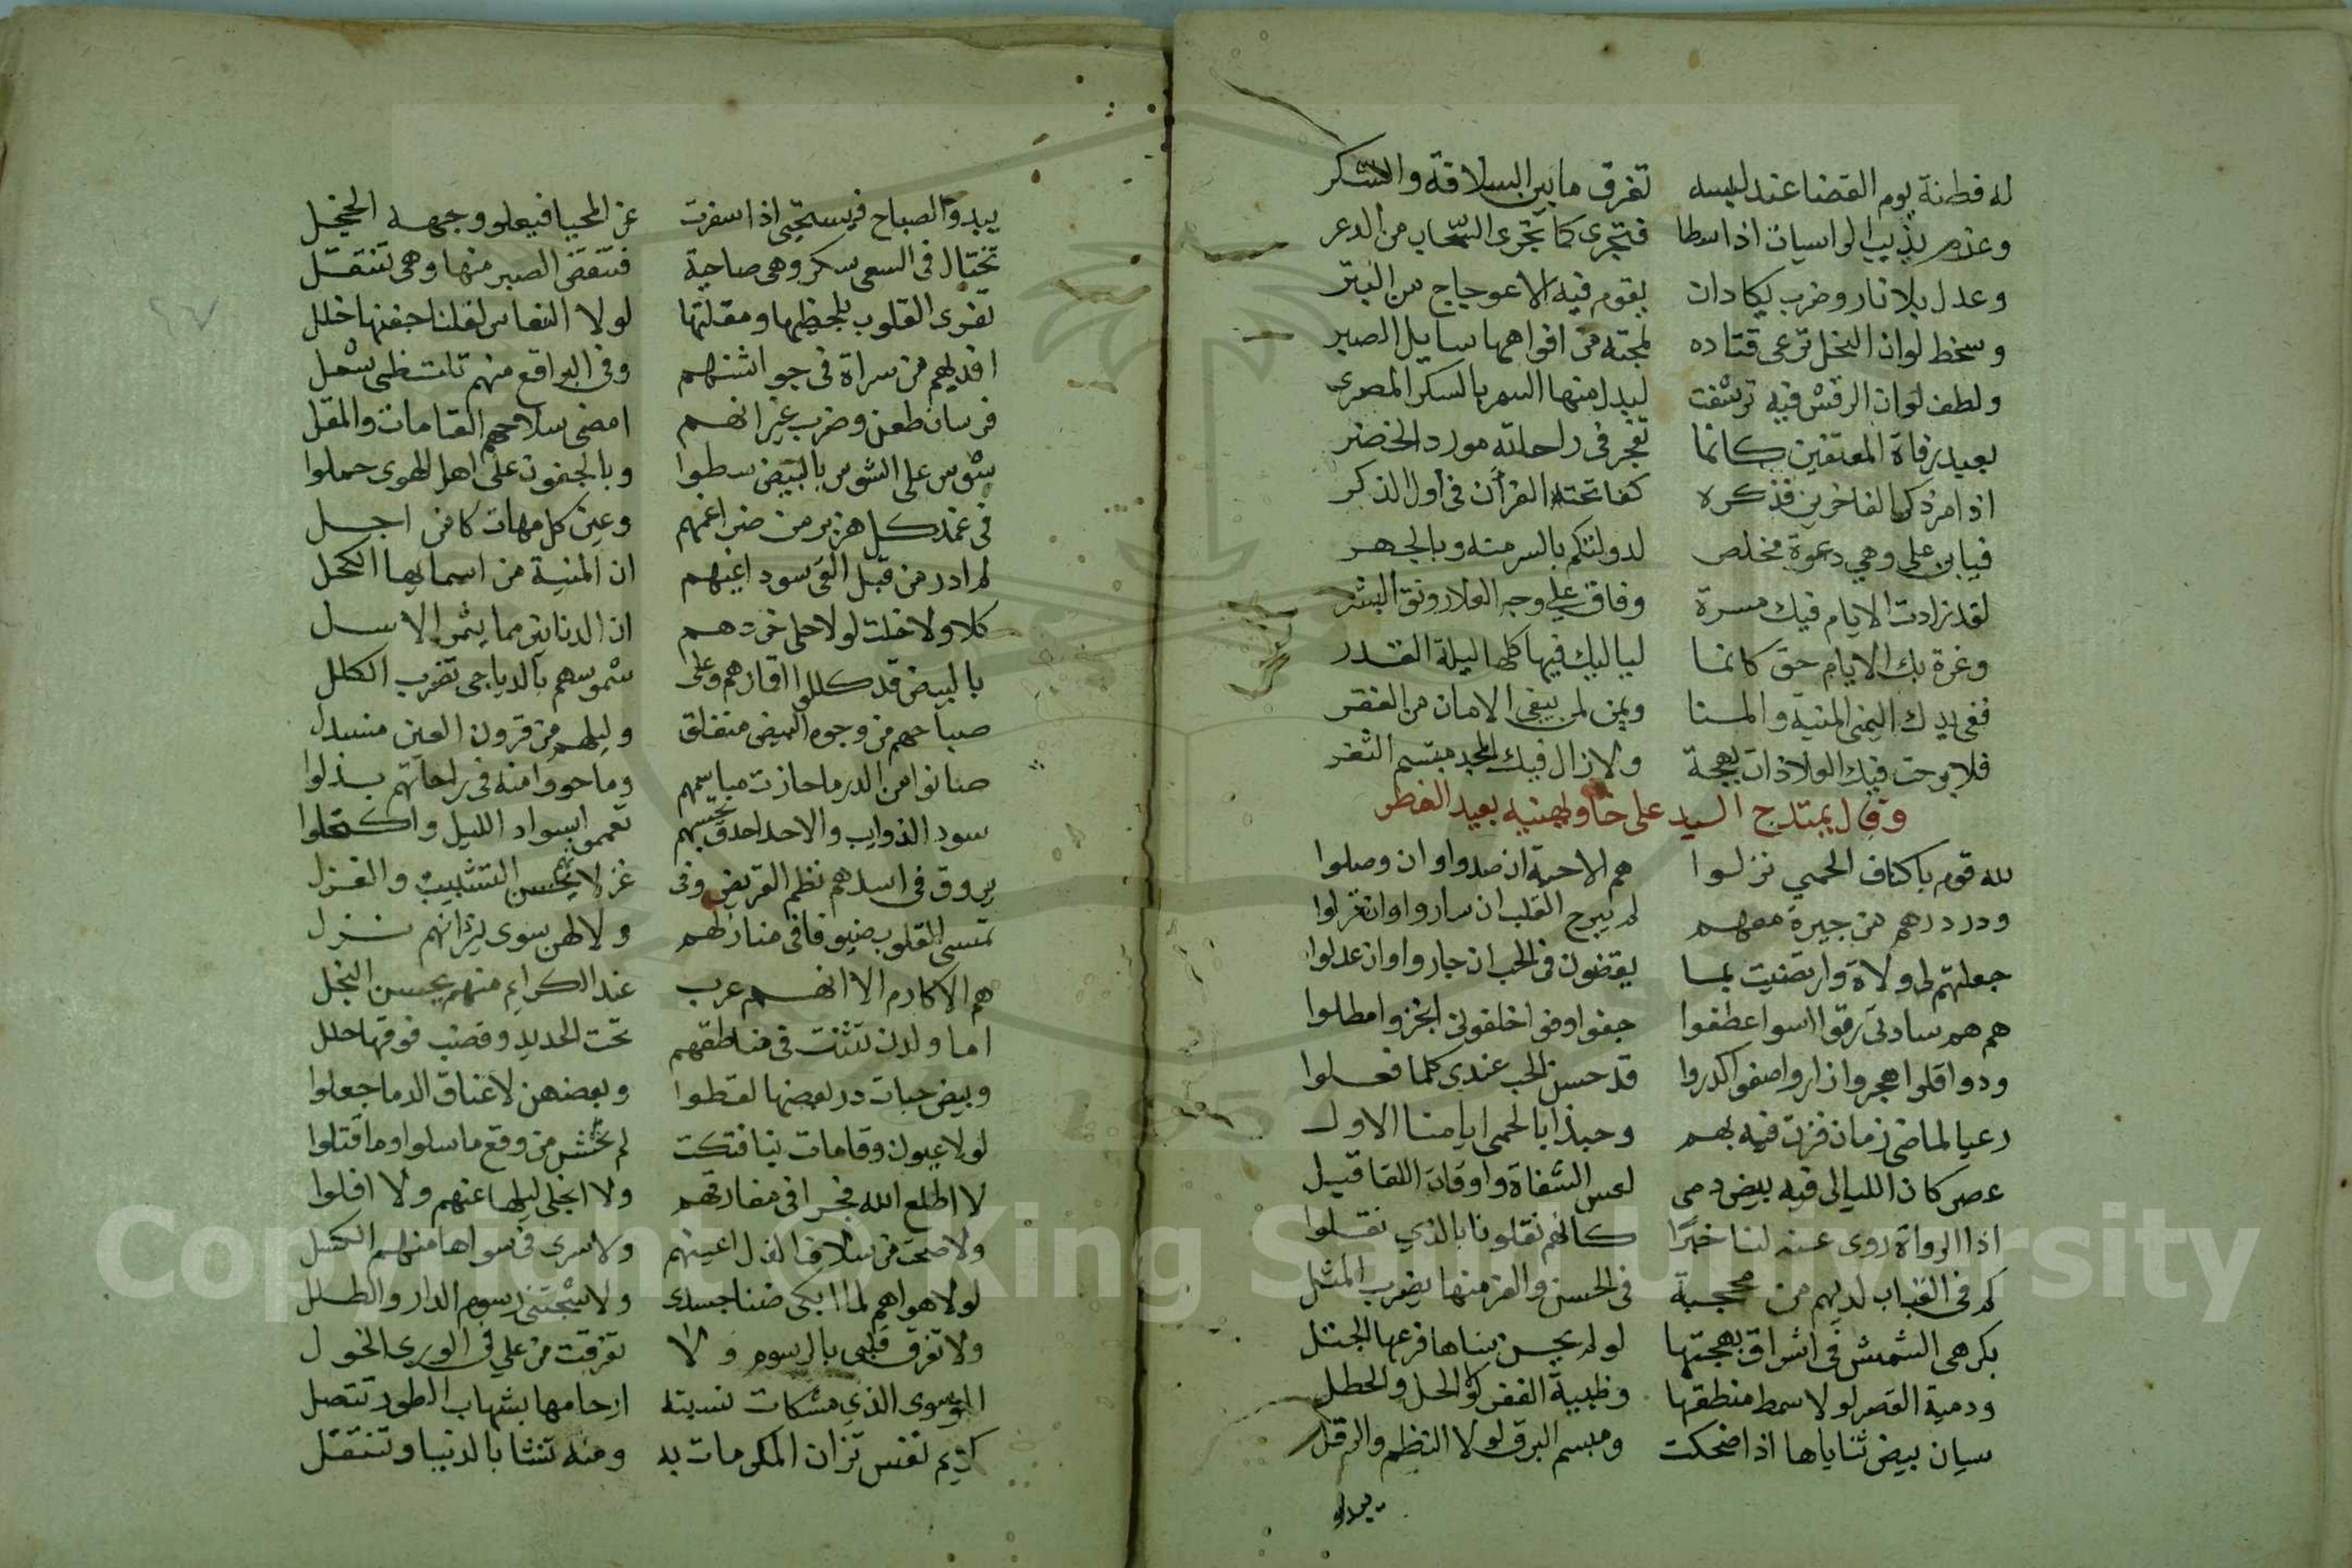 له فطنة يوم القضا عند لبسه تفرق ما بين السلافة والسكر
وعزم يذيب الراسيات اذا سطا فتجري كما تجرى السحاب من الذعر
وعدل بلا نار وضرب يكاد ان يقوم فيه الاعوجاج من البتر
وسخط لوان النحل ترعى قتاده لمجته من افواهها سايل الصبر
ولطف لوان الرقش فيه ترشفت لبدل منها السم بالسكر المصرى
يعيد رفاة المعتفين كانما تفجر في راحاته مورد الخضر
اذا مر ذكر الفاخرين فذكره كفاتحته القرآن في اول الذكر
فيابن علي وهي دعوة مخلص لدولتكم بالسر منه وبالجهر
لقد زادت الايام فيك مسرة وفاق علي وجه العلا رونق البشر
وغرة بك الايام حتى كانما لياليك فيها كلها ليلة القدر
ففي يدك اليمنى المنية والمنا ويمن لمن يبغي الامان من الفقر
فلا برحت فيك العلا ذات بهجة ولا زال فيك المجد مبتسم الثغر
وقال يمتدح السيد على خان ويهنيه بعيد الفطر
لله قوم باكناف الحمي نزلوا هم الاحبة ان صدوا وان وصلوا
ودر درهم من جيرة معهم لم يبرح القلب ان ساروا وان نزلوا
جعلتهم لى ولاة وارتضيت بما يقضون في الحب ان جاروا وان عدلوا
هم هم سادتى رقوا اسوا عطفوا جفوا وفوا خلفونى انجزوا مطلوا
ودوا قلوا هجروا زاروا صفوا كدروا قد حسن الحب عندى كلما فعلوا
رعيا لماضى زمان فزت فيه بهم وحبذا بالحمى ايامنا الاول
عصر كان الليالى فيه بيض دمى لعس الشفاة واوقات اللقا قبل
اذا الرواة روى عنه لنا خبرا كانهم نقلونا بالذي نقلوا
كم في القباب لديهم من محجبة في الحسن والعز منها يضرب المثل
بكر هى الشمس في اشراق بهجتها لو لم يجن سناها فرعها الجثل
ودمية القصر لولا سمط منطقها وظبية القفر لولا الحلى والحطل
سيان بيض ثناياها اذا ضحكت ومبسم البرق لولا النظم والرتل
يبدو
يبدو الصباح فيستحيى اذا سفرت عن المحيا فيعلو وجهه الخجل
تختال في السعى سكر وهى صاحية فتنقضى الصبر منها وهى تنتقل
تغزى القلوب بلحظيها ومقلتها لولا النعاس لقلنا جفنها خلل
افديهم من سراة في جواشنهم وفي البراقع منهم تلتظى شعل
فرسان طعن وضرب غير انهم امضى سلاحهم القامات والمقل
شوس على الشوس بالبيض سطوا وبالجفون على اهل الهوى حملوا
في غمد كل هزبر من ضراغمهم وعين كل مهات كامن اجل
لم ادر من قبل القى سود اعينهم ان المنية من اسمايها الكحل
كلا ولا خلت لولا حلى خردهم ان الدنانير مما يثمر الاسل
بالبيض قد كللوا اقمارهم وعلى شموسهم بالدياجى تضرب الكلل
صباحهم من وجوه البيض منفلق وليلهم من قرون العين منسدل
صانوا من الدر ما حازت مباسمهم وما حووا منه في راحاتهم بذلوا
سود الذوايب والاحداق تحسبهم تعمموا بسواد الليل واكتحلوا
يروق في اسدهم نظم القريض وفي غزلانهم يحسن التشبيب والغزل
تمسى القلوب ضيوفا في منازلهم ولا لهن سوى نيرانهم نزل
هم الاكارم الا انهم عرب عند الكرايم منهم يحسن البخل
اما ولدن تثنت في مناطقهم تحت الحديد وقضب فوقها حلل
وبيض حبات در بعضها لقطوا وبعضهن لاعناق الدما جعلوا
لولا عيون وقامات بنا فتكت لم نخش من وقع ما سلوا وما قتلوا
لا اطلع الله فجرا في مفارقهم ولا انجلى ليلها عنهم ولا افلوا
ولا صحت من سلاف الدل اعينهم ولا سرى في سواها منهم الكسل
لولا هواهم لما ابكى ضنا جسدى ولا شجتنى رسوم الدار والطلل
ولا تفرق قلبى بالرسوم ولا تفرقت من علي في الورى الخول
الموسوى الذي مشكات نسبته ارحامها بشهاب الطور تتصل
كريم نفس تزان المكرمات به ومنه تنشا بالدنيا وتنتقل